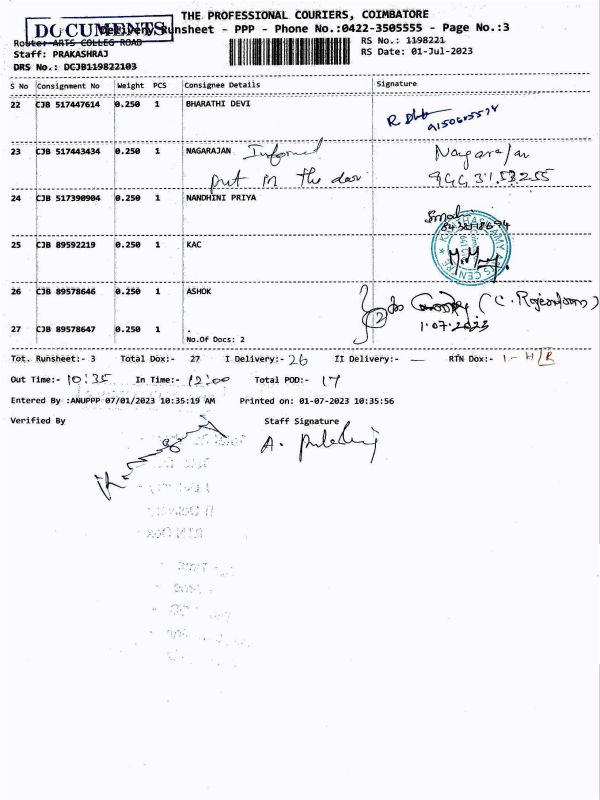 THE PROFESSIONAL COURIERS, COIMBATORE
DOCUMENTS
Delivery Runsheet - PPP - Phone No.:0422-3505555 - Page No.:3
Route: ARTS COLLEG ROAD
RS No.: 1198221
Staff: PRAKASHRAJ
RS Date: 01-Jul-2023
DRS No.: DCJB119822103
S No Consignment No Weight PCS Consignee Details Signature
22 CJB 517447614 0.250 1 BHARATHI DEVI
23 CJB 517443434 0.250 1 NAGARAJAN Informed Nagarajan
put in the door
24 CJB 517390904 0.250 1 NANDHINI PRIYA
25 CJB 89592219 0.250 1 KAC
26 CJB 89578646 0.250 1 ASHOK
2 (C. Rajendran)
1.07.2023
27 CJB 89578647 0.250 1 .
No.Of Docs: 2
Tot. Runsheet:- 3 Total Dox:- 27 I Delivery:- 26 II Delivery:- — RTN Dox:- 1
Out Time:- 10:35 In Time:- 12:00 Total POD:- 17
Entered By :ANUPPP 07/01/2023 10:35:19 AM Printed on: 01-07-2023 10:35:56
Verified By Staff Signature